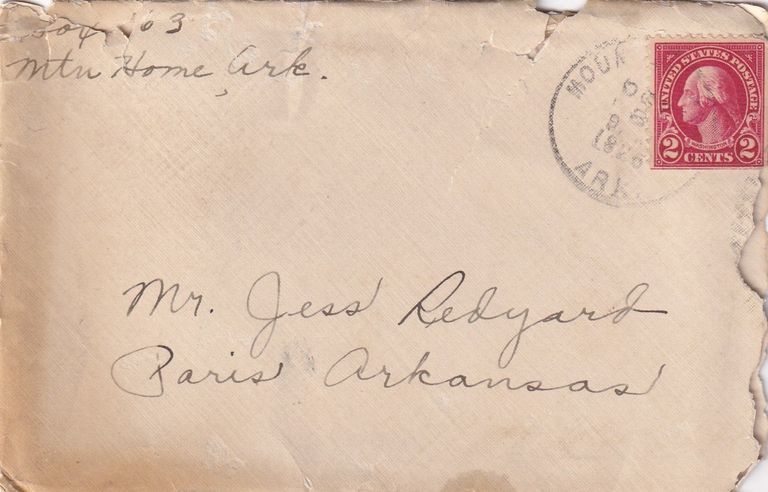 Box 103
Mtn Home Ark.
MOUN
ARK.
1926
UNITED STATES POSTAGE
WASHINGTON
2 CENTS 2
Mr. Jess Redyard
Paris Arkansas